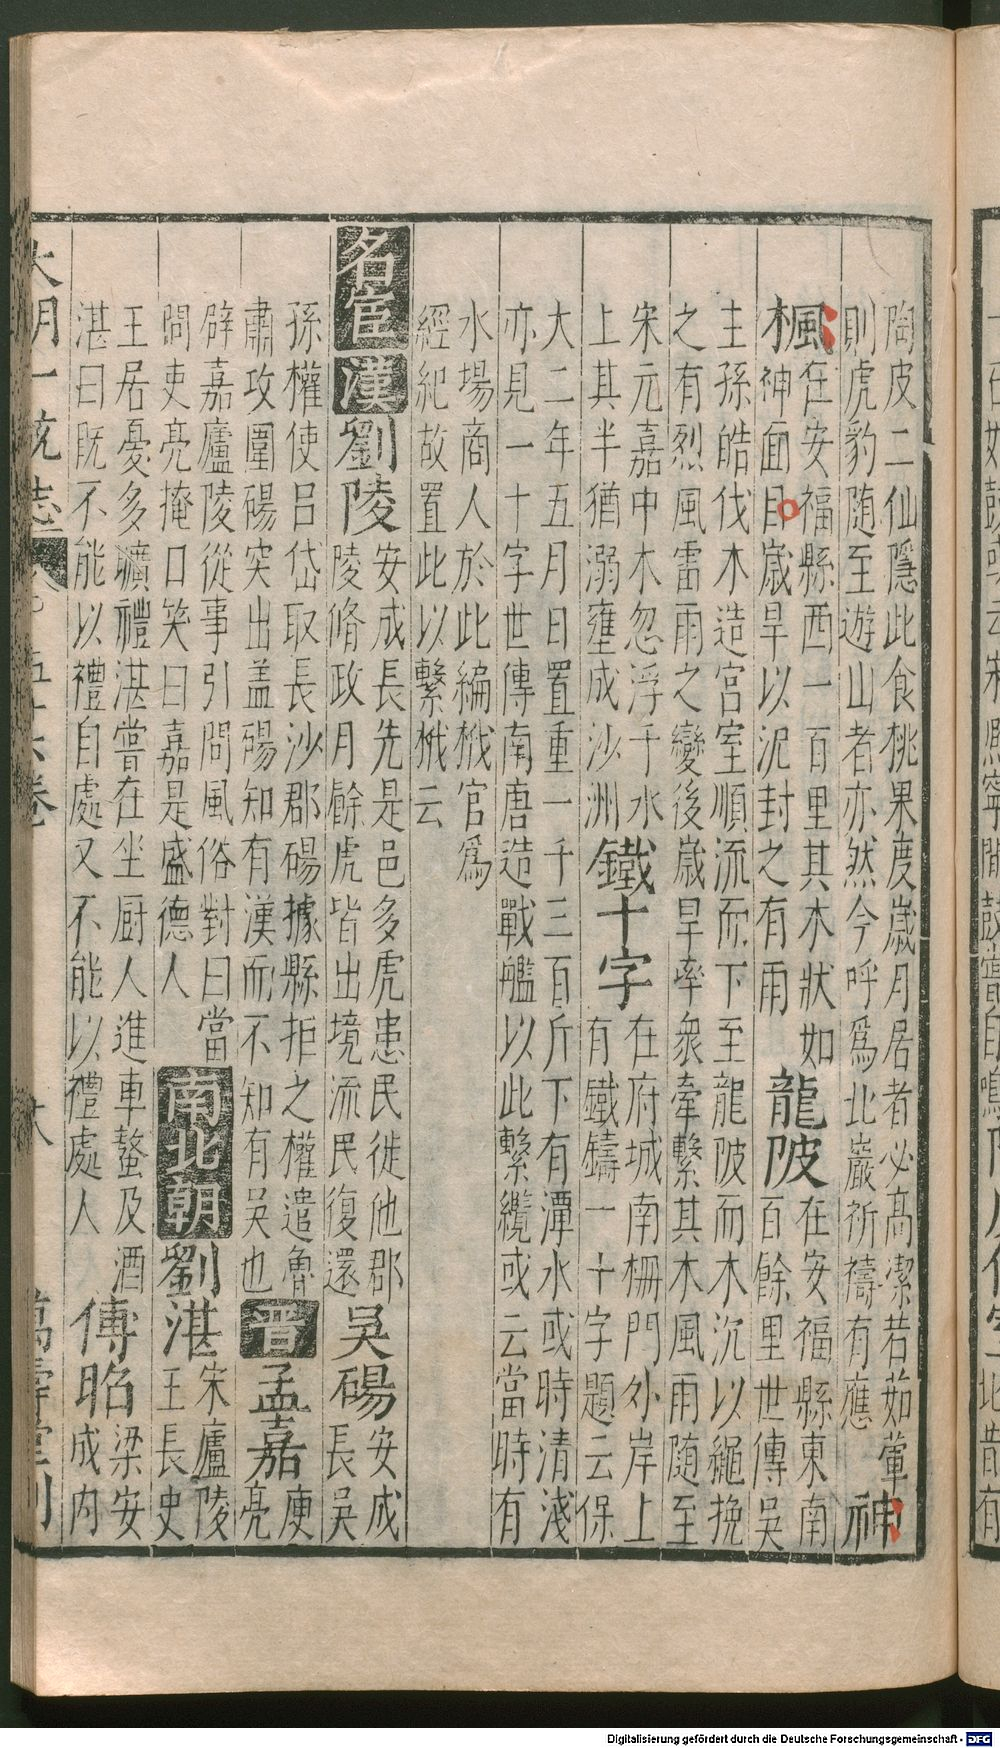 陶皮二仙隱此食桃果度歲月居者必高潔若茹葷
則虎豹随至遊山者亦然今呼爲北巖祈禱有應
神
楓
在安福縣西一百里其木狀如
神面目歲旱以泥封之有雨
龍陂
在安福縣東南
百餘里世傳吳
主孫皓伐木造宮室順流而下至龍陂而木沉以繩挽
之有烈風雷雨之變後歲旱率衆牽繫其木風雨随至
宋元嘉中木忽浮于水
上其半猶溺壅成沙洲
鐵十字
在府城南柵門外岸上
有鐵鑄一十字題云保
大二年五月日置重一千三百斤下有潭水或時清淺
亦見一十字世傳南唐造戰艦以此繫纜或云當時有
水場商人於此編栰官爲
經紀故置此以繫栰云
名宦 漢 劉陵
安成長先是邑多虎患民徙他郡
陵脩政月餘虎皆出境流民復還
吳碭
安成
長吳
孫權使呂岱取長沙郡碭據縣拒之權遣魯
肅攻圍碭突出盖碭知有漢而不知有吳也
晉 孟嘉
庾
亮
辟嘉廬陵從事引問風俗對曰當
問吏亮掩口笑曰嘉是盛德人
南北朝 劉湛
宋廬陵
王長史
王居憂多曠禮湛嘗在坐厨人進車螯及酒
湛曰既不能以禮自處又不能以禮處人
傅昭
梁安
成内
大明一統志 五十六卷 萬壽堂刊
Digitalisierung gefördert durch die Deutsche Forschungsgemeinschaft - DFG